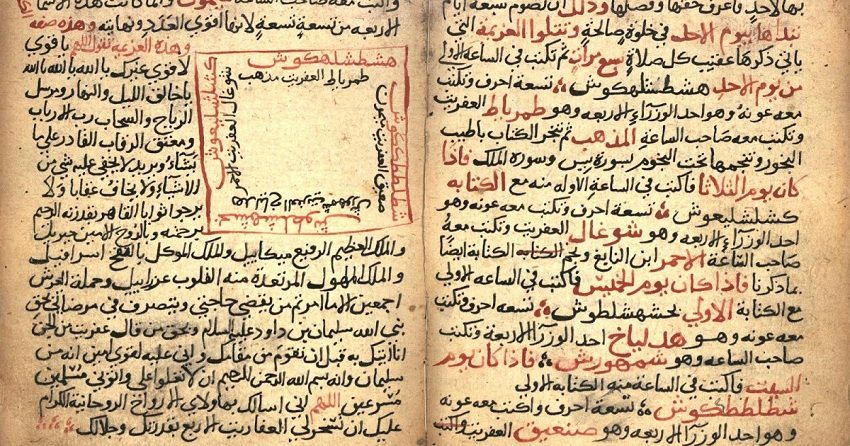 بها لاحد فاعرف حقها وفضلها وذلك ان تصوم تسعة ايام
تبداها بيوم الاحد في خلوة صالحة وتتلوا العزيمة التي
ياتي ذكرها عقيب كل صلاة سبع مرات ثم تكتب في الساعة الاولى
من يوم الاحد هشطشلهكوش تسعة احرف وتكتب
معه عونه وهو احد الوزراء الاربعه وهو طمرياط العفريت
وتكتب معه صاحب الساعة المذهب ثم تبخر الكتاب باطيب
البخور وتنجمها تحت النجوم بسورة يس وسورة الملك فاذا
كان يوم الثلاثا فاكتب في الساعة الاوله منه مع الكتابه
كشلشليعوش تسعة احرف وتكتب معه عونه وهو
احد الوزراء الاربعه وهو شوغال العفريت وتكتب معه
صاحب الساعة الاحمر ابن الكتابة ايضا
بما ذكرنا فاذا كان يوم الخميس فاكتب في الساعه الاولي
مع الكتابة الاولي تسعه احرف وتكتب
معه عونه وهو هدلياخ احد الوزراء الاربعة وتكتب
صاحب الساعه وهو شمهورش فاذا كان يوم
السبت فاكتب في الساعة منه الكتابة الاولي
شطلططكوش تسعة احرف واكتب معه عونه
وهو احد الوزراء الاربعه وهو صنعيق العفريت واكتب
الاربعه من تسعة تسعة لانها اقوي العدد ونهايته وهذه صفه
وهذه العزيمه تقول اللهم يا قوي
لا قوي غيرك يا الله يا الله يا الله
يا خالق الليل والنهار ومرسل
الرياح والسحاب رب الارباب
ومعتق الرقاب القادر على ما
يشاء ويريد لا يخفي عليه شي من
الاشياء ولا يخاف عقابا ولا
يرجوا ثوابا القاهر بقدرته الرحيم
برحمته وبالروح الامين جبريل
هشطشلهكوش
طمرياط العفريت مذهب
كشلشليعوش
شوغال العفريت الاحمر
شطلططكوش
صنعيق العفريت
والملك العظيم الرفيع ميكاييل والملك الموكل اسرافيل
والملك المهول المرتعدة منه القلوب عزراييل وحملة العرش
اجمعين الا ما امرتم من يقضي حاجتي ويتصرف في مرضاتي بحق
نبي الله سليمان بن داود عليه السلام وبحق من قال عفريت من الجن
انا اتيك به قبل ان تقوم من مقامك واني عليه لقوي امين انه من
سليمان وانه بسم الله الرحمن الرحيم ان لا تعلوا علي واتوني مسلمين
مسرعين اللهم اني اسالك بها ولاي الارواح الروحانية الكرام
عليك ان تسخر لي العفاريت الاربع بقدرتك وجلالك